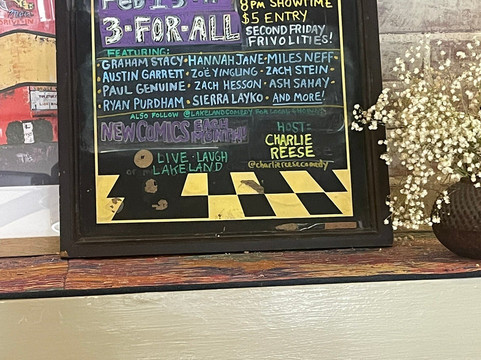 8PM SHOWTIME
3-FOR-ALL
$5 ENTRY
SECOND FRIDAY
FRIVOLITIES!
FEATURING:
GRAHAM STACY • HANNAH JANE • MILES NEFF •
• AUSTIN GARRETT • ZOË YINGLING • ZACH STEIN •
PAUL GENUINE • ZACH HESSON • ASH SAHAY •
• RYAN PURDHAM • SIERRA LAYKO • AND MORE!
ALSO FOLLOW @LAKELANDCOMEDY FOR
NEW COMICS EACH MONTH!
HOST:
CHARLIE
REESE
@charliereesecomedy
LIVE • LAUGH
LAKELAND